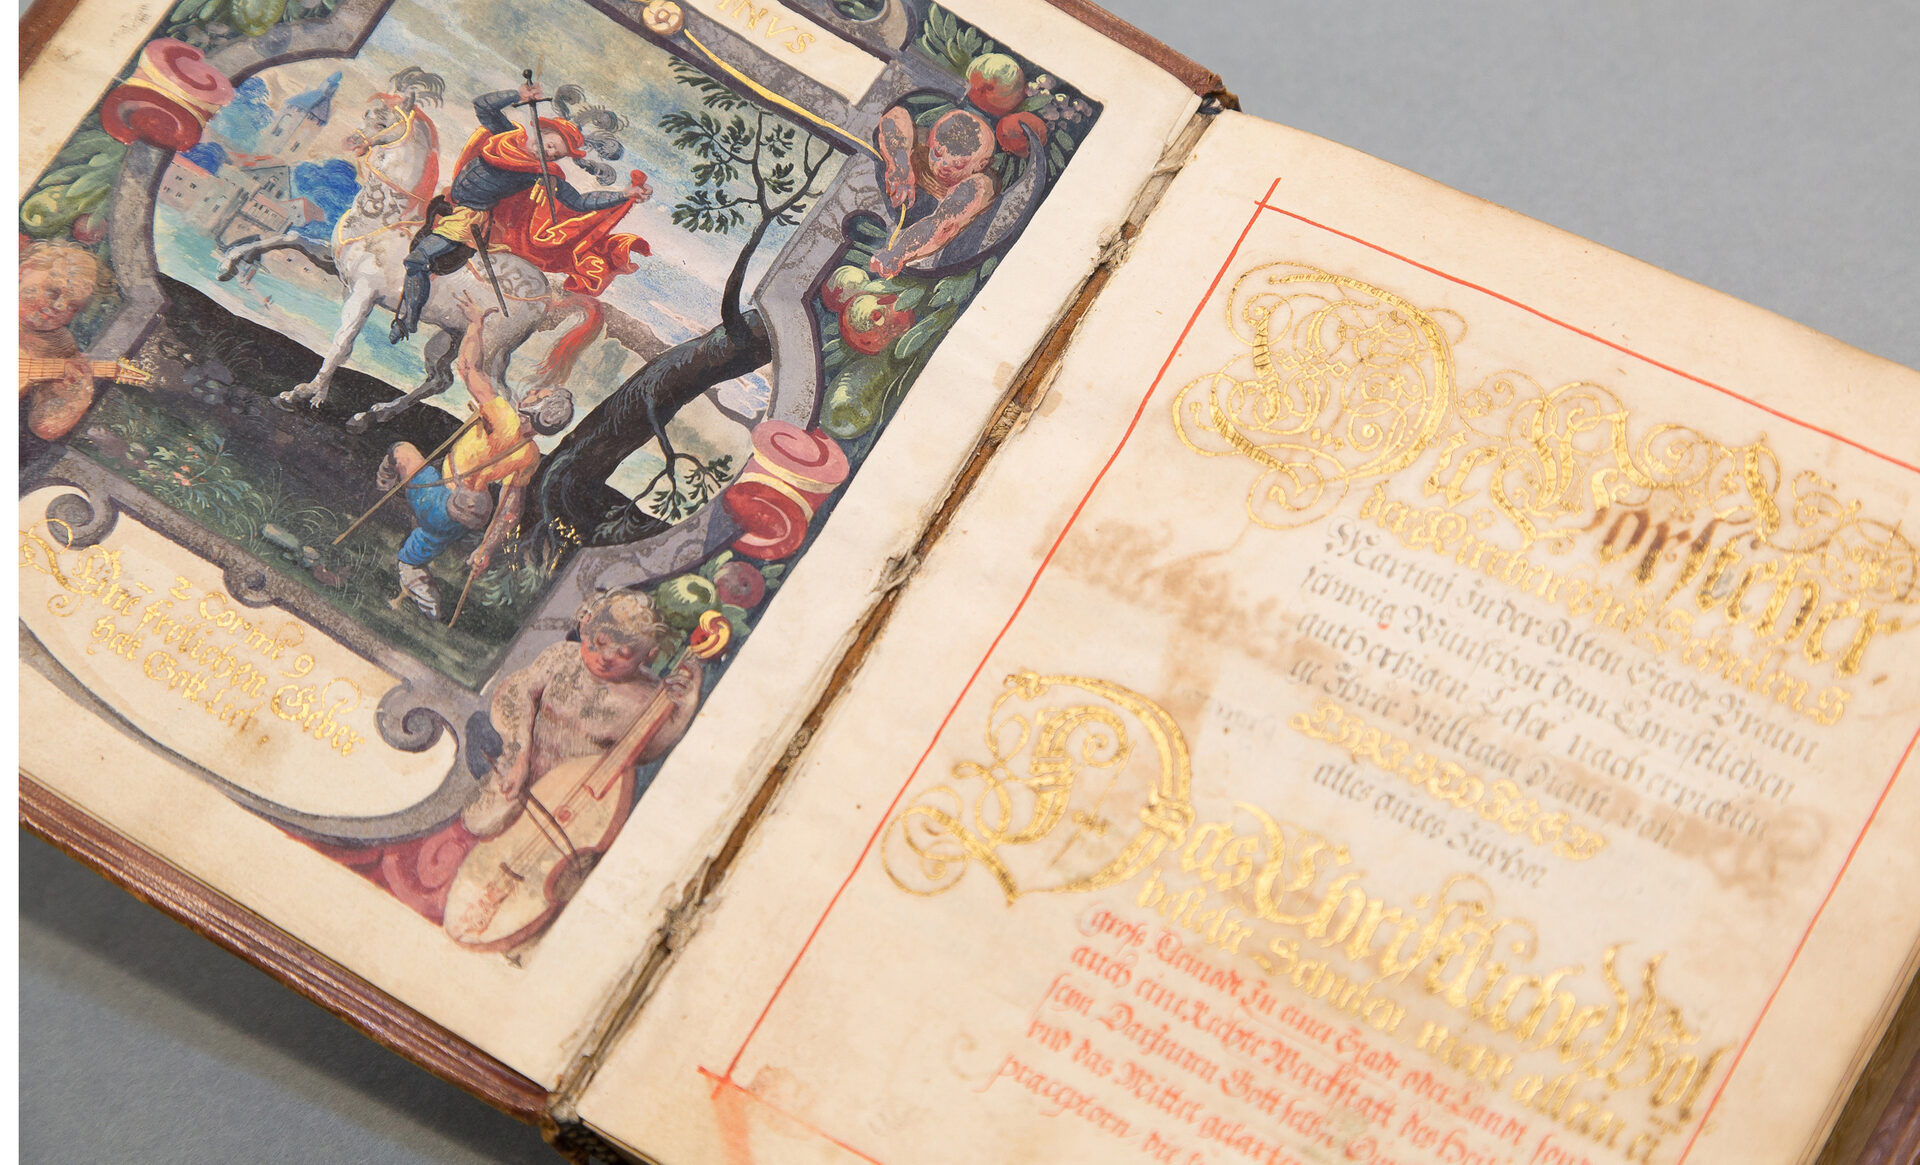 INVS
2 Corint 9
Eine frölichen Geber
hat Gott Lieb:
Die Vorsteher
der Kirchen vnd Schulen S
Martini In der Alten Stadt Braun
schweig Wünschen dem Christlichen
gutherzigen Leser nach erbietun
ge Ihrer Willigen Dienst, von
CHRISTO IESV
alles gutes Zuvor
Das Christliche Wol
bestelte Schulen nicht allein ei
gros Cleinodt In einer Stadt oder Landt sond
auch eine Rechte Werckstatt des Heili
seyn Darynnen Gott selbst
vnd das Mittel gelarter
praeceptorn, die